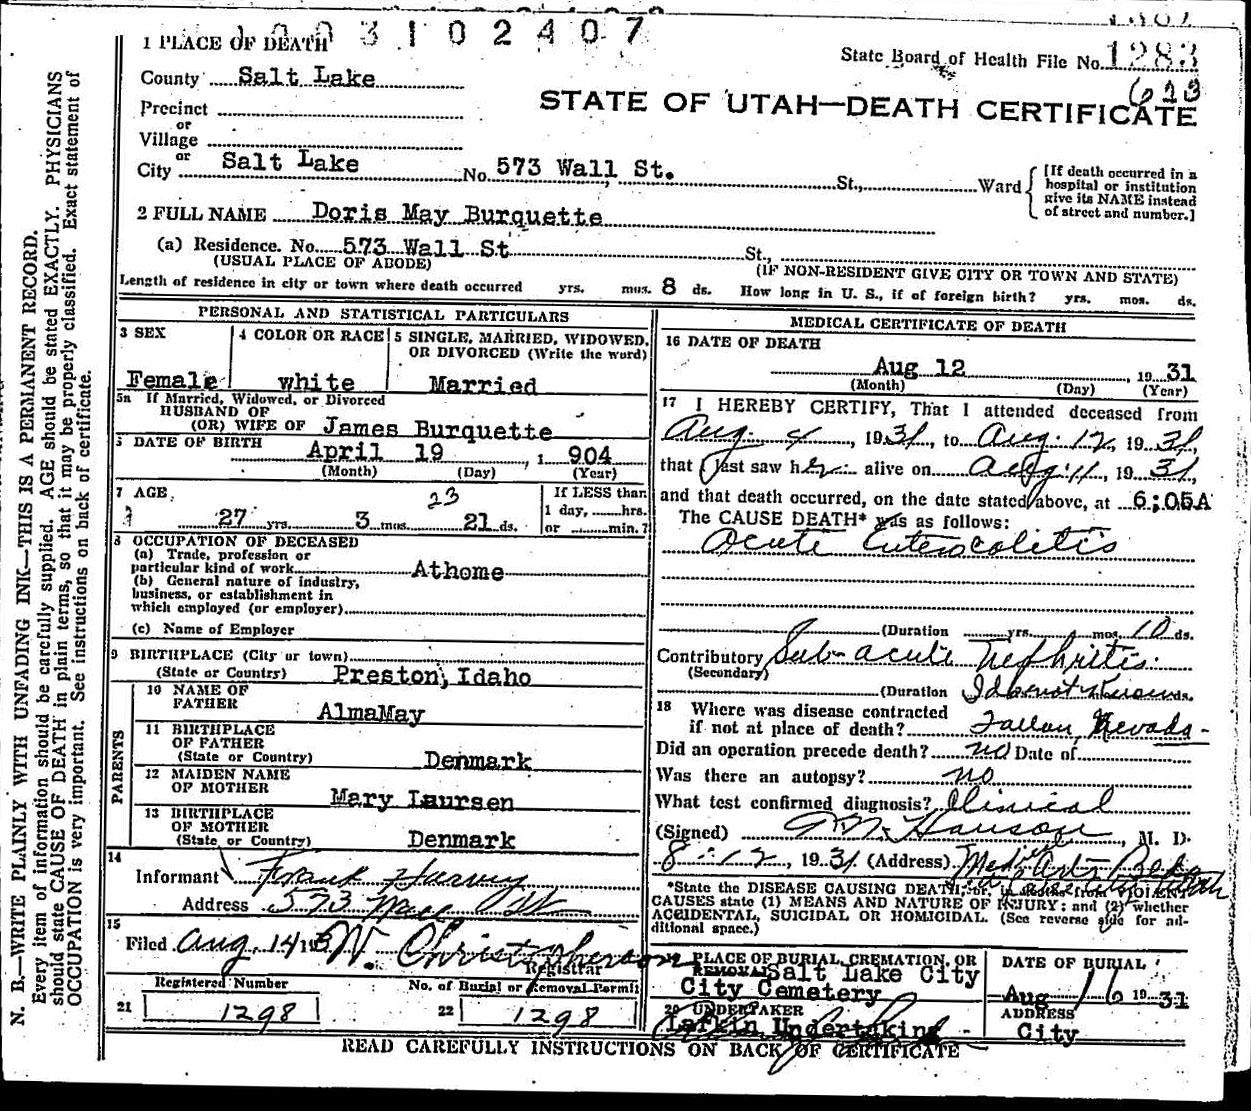 1003102407
1 PLACE OF DEATH
State Board of Health File No. 1283
County Salt Lake
623
STATE OF UTAH—DEATH CERTIFICATE
Precinct
or
Village
or
City Salt Lake No. 573 Wall St. St., Ward
[If death occurred in a hospital or institution give its NAME instead of street and number.]
2 FULL NAME Doris May Burquette
(a) Residence. No. 573 Wall St St.,
(USUAL PLACE OF ABODE) (IF NON-RESIDENT GIVE CITY OR TOWN AND STATE)
Length of residence in city or town where death occurred yrs. mos. 8 ds. How long in U. S., if of foreign birth? yrs. mos. ds.
PERSONAL AND STATISTICAL PARTICULARS
3 SEX
Female
4 COLOR OR RACE
white
5 SINGLE, MARRIED, WIDOWED, OR DIVORCED (Write the word)
Married
5a If Married, Widowed, or Divorced
HUSBAND OF
(OR) WIFE OF James Burquette
DATE OF BIRTH April 19, 1904
(Month) (Day) (Year)
7 AGE
23
27 yrs. 3 mos. 21 ds.
If LESS than
1 day, hrs.
or min.?
8 OCCUPATION OF DECEASED
(a) Trade, profession or
particular kind of work Athome
(b) General nature of industry,
business, or establishment in
which employed (or employer)
(c) Name of Employer
9 BIRTHPLACE (City or town)
(State or Country) Preston, Idaho
PARENTS
10 NAME OF
FATHER AlmaMay
11 BIRTHPLACE
OF FATHER
(State or Country) Denmark
12 MAIDEN NAME
OF MOTHER Mary Laursen
13 BIRTHPLACE
OF MOTHER
(State or Country) Denmark
14
Informant Frank Harvey
Address 573 Wall St
15
Filed Aug. 14 193 W. Christopherson
Registrar
Registered Number
21 1298
No. of Burial or Removal Permit
22 1298
MEDICAL CERTIFICATE OF DEATH
16 DATE OF DEATH
Aug 12, 1931
(Month) (Day) (Year)
17 I HEREBY CERTIFY, That I attended deceased from
Aug. 4, 1931, to Aug. 12, 1931,
that I last saw her alive on Aug. 11, 1931,
and that death occurred, on the date stated above, at 6;05A
The CAUSE DEATH* was as follows:
Acute Enterocolitis
(Duration yrs. mos. 10 ds.
Contributory Sub-acute Nephritis.
(Secondary)
(Duration I do not know ds.
18 Where was disease contracted
if not at place of death? Fallon, Nevada-
Did an operation precede death? no Date of
Was there an autopsy? no
What test confirmed diagnosis? Clinical
(Signed) Hanson, M. D.
8-12, 1931 (Address) Med Arts Bldg
*State the DISEASE CAUSING DEATH, or in deaths from VIOLENT
CAUSES state (1) MEANS AND NATURE OF INJURY; and (2) whether
ACCIDENTAL, SUICIDAL OR HOMICIDAL. (See reverse side for ad-
ditional space.)
PLACE OF BURIAL, CREMATION, OR
REMOVAL Salt Lake City
City Cemetery
DATE OF BURIAL
Aug 16 1931
20 UNDERTAKER
Larkin Undertaking
ADDRESS
City
READ CAREFULLY INSTRUCTIONS ON BACK OF CERTIFICATE
N. B.—WRITE PLAINLY WITH UNFADING INK—THIS IS A PERMANENT RECORD.
Every item of information should be carefully supplied. AGE should be stated EXACTLY. PHYSICIANS
should state CAUSE OF DEATH in plain terms, so that it may be properly classified. Exact statement of
OCCUPATION is very important. See instructions on back of certificate.